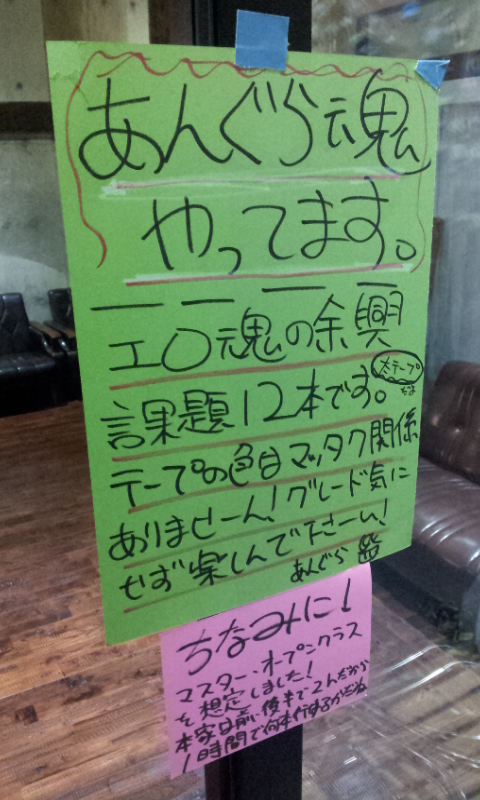 あんぐら魂
やってます。
エ〇魂の余興
課題12本です。
太テープ
テープの色白マッタク関係
ありませーん!グレード気に
せず楽しんで下さーい!
あんぐら
ちなみに!
マスター、オープンクラス
を想定しました!
本家は前、後半で2んだから
1時間で何本行するかだね